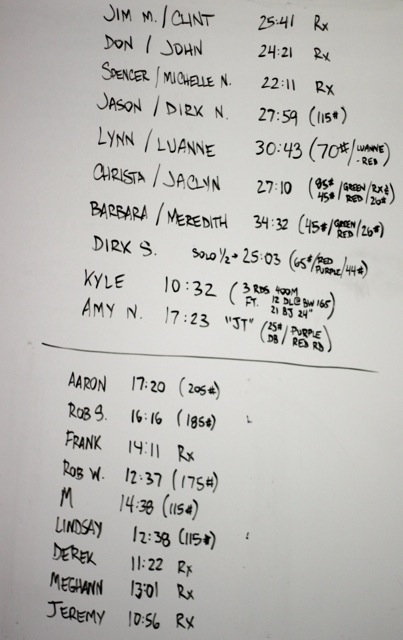 JIM M. / CLINT 25:41 Rx
DON / JOHN 24:21 Rx
SPENCER / MICHELLE N. 22:11 Rx
JASON / DIRK N. 27:59 (115#)
LYNN / LUANNE 30:43 (70#/LUANNE - RED)
CHRISTA / JACLYN 27:10 (85# 45#/GREEN RED/RX & 20#)
BARBARA / MEREDITH 34:32 (45#/GREEN RED/20#)
DIRK S. SOLO 1/2 → 25:03 (65#/RED PURPLE/44#)
KYLE 10:32 (3 RDS 400M FT. 12 DL@BW 165 21 BJ 24")
AMY N. 17:23 "JT" (25# DB/PURPLE RED RD)
AARON 17:20 (205#)
ROB S. 16:16 (185#)
FRANK 14:11 Rx
ROB W. 12:37 (175#)
M 14:38 (115#)
LINDSAY 12:38 (115#)
DEREK 11:22 Rx
MEGHANN 13:01 Rx
JEREMY 10:56 Rx